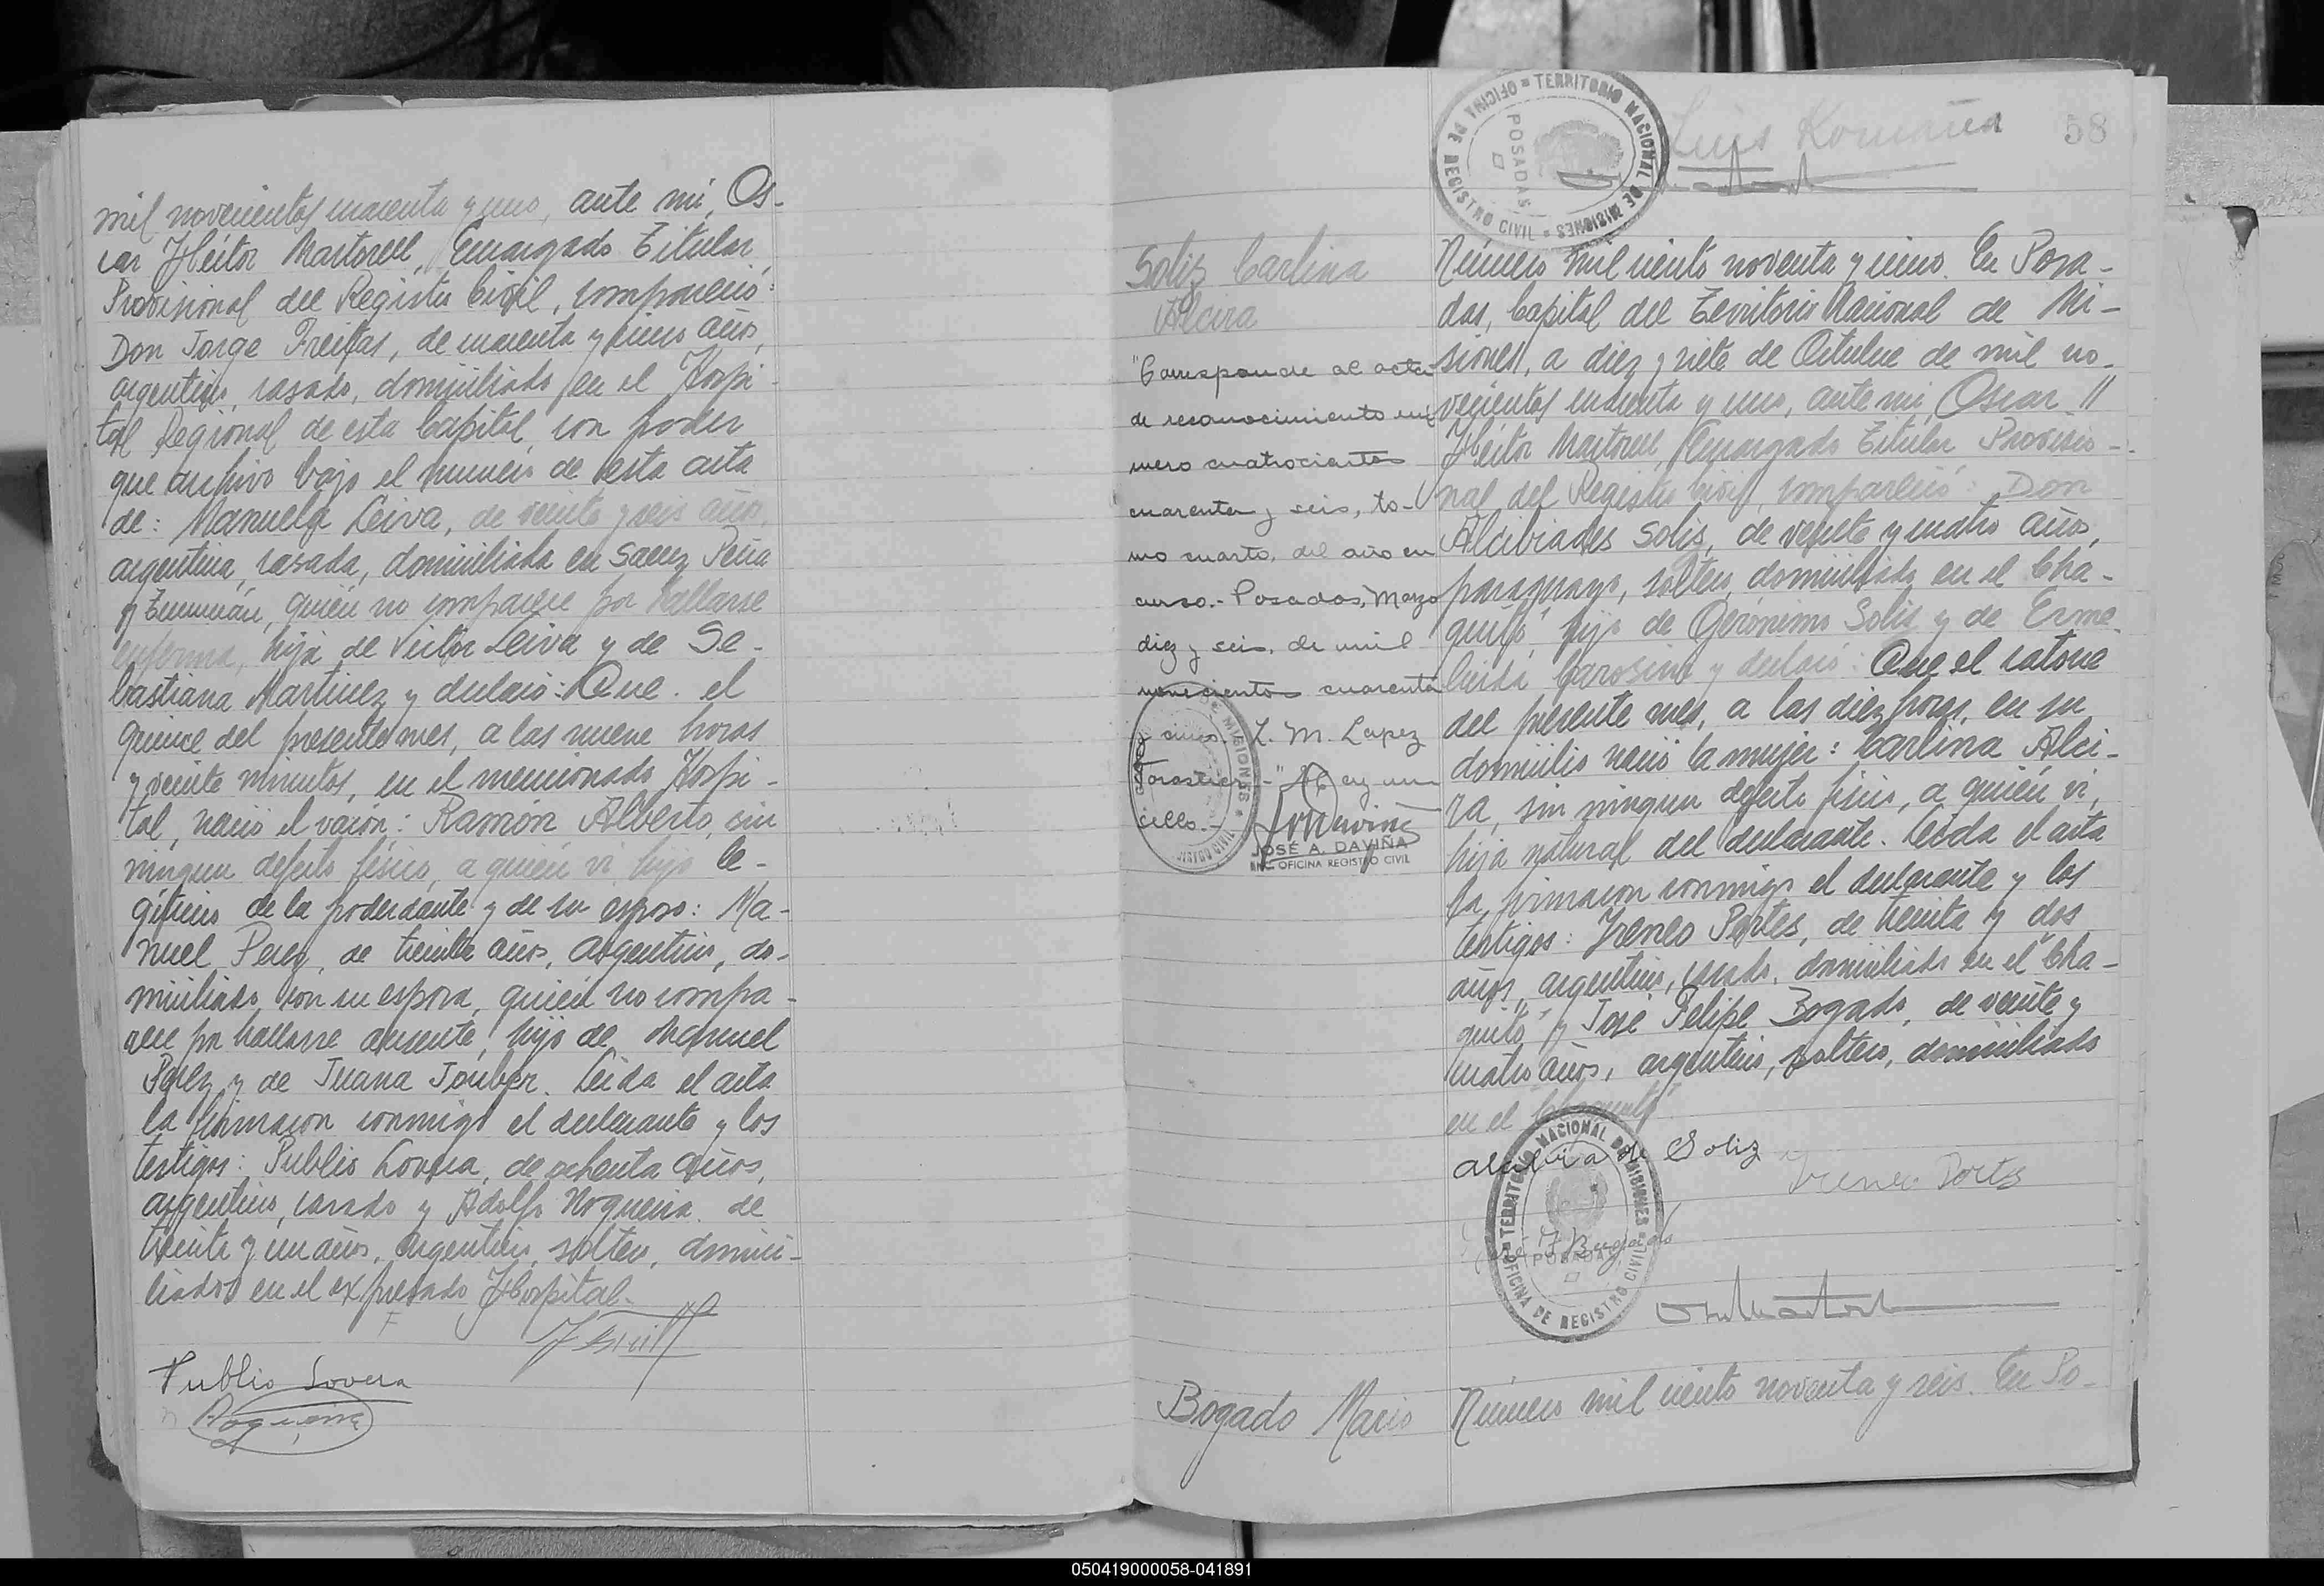 mil novecientos cuarenta y uno, ante mi, Os-
car Héctor Martorell, Encargado Titular
Provisional del Registro Civil, compareció:
Don Jorge Freitas, de cuarenta y cinco años,
argentino, casado, domiciliado en el Hospi-
tal Regional de esta Capital con poder
que archivo bajo el número de esta acta
de: Manuela Leiva, de veinte y seis años,
argentina, casada, domiciliada en Saenz Peña
y Tucumán, quién no comparece por hallarse
enferma, hija de Victor Leiva y de Se-
bastiana Martinez y declaró: Que el
quince del presente mes, a las nueve horas
y veinte minutos, en el mencionado Hospi-
tal, nació el varón: Ramón Alberto, sin
ningun defecto físico, a quién vi, hijo le-
gítimo de la poderdante y de su esposo: Ma-
nuel Perez, de treinta años, argentino, do-
miciliado con su esposa, quién no compa-
rece por hallarse ausente, hijo de Manuel
Perez y de Juana Jouber. Leida el acta
la firmaron conmigo el declarante y los
testigos: Publio Lovera, de ochenta años,
argentino, casado y Adolfo Nogueira de
treinta y un años, argentino, soltero, domici-
liados en el expresado Hospital.
Publio Lovera
Nogueira
Luis Romaña
58
TERRITORIO NACIONAL DE MISIONES
OFICINA DE REGISTRO CIVIL
POSADAS
Soliz Carlina
Alcira
"Corresponde al acta
de reconocimiento nú
mero cuatrocientos
cuarenta y seis, to-
mo cuarto, del año en
curso.- Posadas, Marzo
diez y seis, de mil
novecientos cuarenta
cinco. L. M. Lopez
Forastier.-" Hay un
sello.-
DE MISIONES
JOSÉ A. DAVIÑA
ENC. OFICINA REGISTRO CIVIL
Número mil ciento noventa y cinco. En Posa-
das, Capital del Territorio Nacional de Mi-
siones, a diez y siete de Octubre de mil no-
vecientos cuarenta y uno, ante mi, Oscar //
Héctor Martorell, Encargado Titular Provisio-
nal del Registro Civil, compareció: Don
Alcibiades Solis, de veinte y cuatro años,
paraguayo, soltero, domiciliado en el "Cha-
quito", hijo de Gerónimo Solis y de Erme-
linda Carosini y declaró: Que el catorce
del presente mes, a las diez horas, en su
domicilio nació la mujer: Carlina Alci-
ra, sin ningun defecto físico, a quién vi,
hija natural del declarante. Leida el acta
la firmaron conmigo el declarante y los
testigos: Ireneo Portes, de treinta y dos
años, argentino, casado, domiciliado en el "Cha-
quito" y José Felipe Bogado, de veinte y
cuatro años, argentino, soltero, domiciliado
en el "Chaquito".
Soliz
Ireneo Portes
José F Bogado
TERRITORIO NACIONAL DE MISIONES
OFICINA DE REGISTRO CIVIL
POSADAS
Bogado Mario
Número mil ciento noventa y seis. En Po-
050419000058-041891